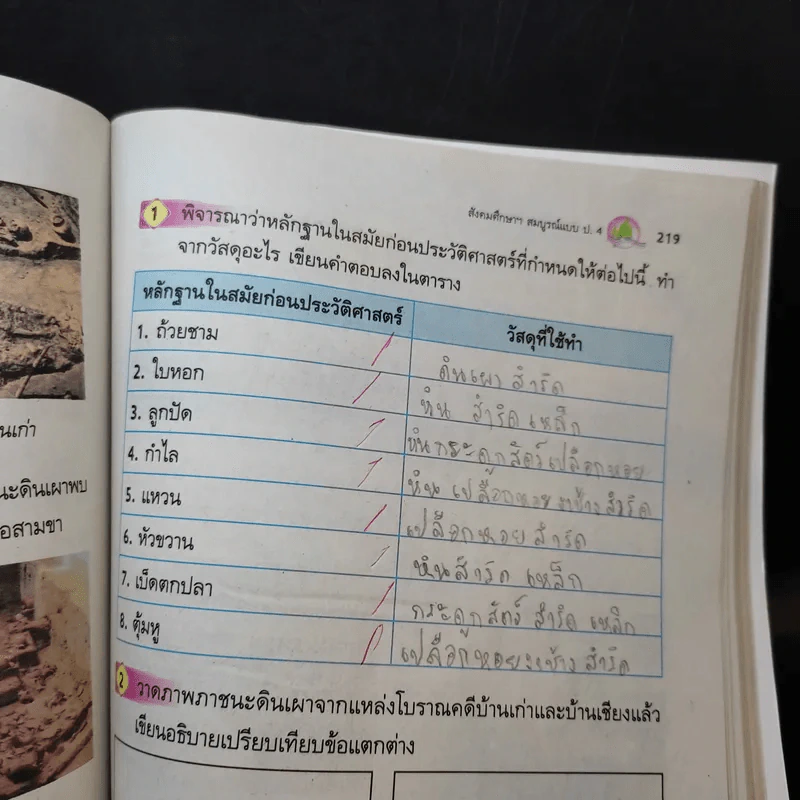 สังคมศึกษาฯ สมบูรณ์แบบ ป. 4 219
1 พิจารณาว่าหลักฐานในสมัยก่อนประวัติศาสตร์ที่กำหนดให้ต่อไปนี้ ทำ
จากวัสดุอะไร เขียนคำตอบลงในตาราง
หลักฐานในสมัยก่อนประวัติศาสตร์ วัสดุที่ใช้ทำ
1. ถ้วยชาม ดินเผา สำริด
2. ใบหอก หิน สำริด เหล็ก
3. ลูกปัด หิน กระดูกสัตว์ เปลือกหอย
4. กำไล หิน เปลือกหอย งาช้าง สำริด
5. แหวน เปลือกหอย สำริด
6. หัวขวาน หิน สำริด เหล็ก
7. เบ็ดตกปลา กระดูกสัตว์ สำริด เหล็ก
8. ตุ้มหู เปลือกหอย งาช้าง สำริด
2 วาดภาพภาชนะดินเผาจากแหล่งโบราณคดีบ้านเก่าและบ้านเชียงแล้ว
เขียนอธิบายเปรียบเทียบข้อแตกต่าง
นเก่า
นะดินเผาพบ
อสามขา